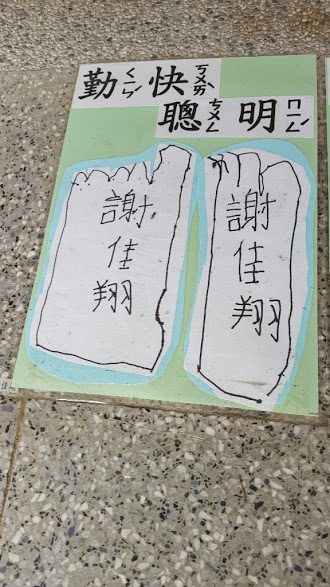 勤ㄑㄧㄣˊ快ㄎㄨㄞˋ
聰ㄘㄨㄥ明ㄇㄧㄥˊ
謝佳翔
謝佳翔